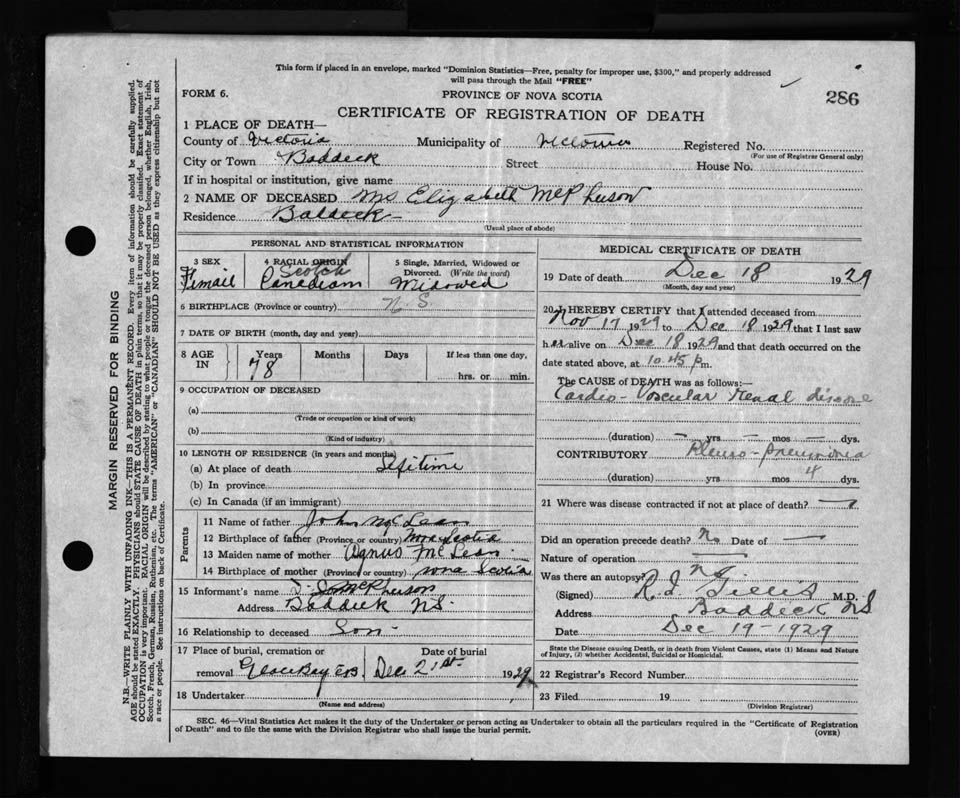 This form if placed in an envelope, marked "Dominion Statistics—Free, penalty for improper use, $300," and properly addressed
will pass through the Mail "FREE"
FORM 6.
PROVINCE OF NOVA SCOTIA
286
CERTIFICATE OF REGISTRATION OF DEATH
1 PLACE OF DEATH—
County of Victoria Municipality of Victoria Registered No.
(For use of Registrar General only)
City or Town Baddeck Street House No.
If in hospital or institution, give name
2 NAME OF DECEASED Mrs Elizabeth McPherson
Residence Baddeck
(Usual place of abode)
PERSONAL AND STATISTICAL INFORMATION
3 SEX
Femail
4 RACIAL ORIGIN
Scotch
Canadian
5 Single, Married, Widowed or
Divorced. (Write the word)
Widowed
6 BIRTHPLACE (Province or country) N.S.
7 DATE OF BIRTH (month, day and year)
8 AGE
IN
Years
78
Months
Days
If less than one day,
hrs. or min.
9 OCCUPATION OF DECEASED
(a)
(Trade or occupation or kind of work)
(b)
(Kind of industry)
10 LENGTH OF RESIDENCE (in years and months)
(a) At place of death Lifitime
(b) In province
(c) In Canada (if an immigrant)
Parents
11 Name of father John McLean
12 Birthplace of father (Province or country) Nova Scotia
13 Maiden name of mother McLean
14 Birthplace of mother (Province or country) Nova Scotia
15 Informant's name McPherson
Address Baddeck N.S.
16 Relationship to deceased Son
17 Place of burial, cremation or
removal Glace Bay C.B.
Date of burial
Dec 21st 1929
18 Undertaker
(Name and address)
MEDICAL CERTIFICATE OF DEATH
19 Date of death Dec 18 1929
(Month, day and year)
20 I HEREBY CERTIFY that I attended deceased from
Nov 17 1929 to Dec 18 1929 that I last saw
her alive on Dec 18 1929 and that death occurred on the
date stated above, at 10.45 p m.
The CAUSE of DEATH was as follows:—
Cardio-Vascular Renal disease
(duration) — yrs — mos — dys.
CONTRIBUTORY Pleuro-pneumonia
(duration) yrs mos 4 dys.
21 Where was disease contracted if not at place of death? —
Did an operation precede death? No Date of —
Nature of operation —
Was there an autopsy? no
(Signed) R. J. Gillis M.D.
Address Baddeck NS
Date Dec 19-1929
State the Disease causing Death, or in death from Violent Causes, state (1) Means and Nature
of Injury, (2) whether Accidental, Suicidal or Homicidal.
22 Registrar's Record Number
23 Filed 19
(Division Registrar)
SEC. 46—Vital Statistics Act makes it the duty of the Undertaker or person acting as Undertaker to obtain all the particulars required in the "Certificate of Registration
of Death" and to file the same with the Division Registrar who shall issue the burial permit.
(OVER)
MARGIN RESERVED FOR BINDING
N.B.—WRITE PLAINLY WITH UNFADING INK—THIS IS A PERMANENT RECORD. Every item of information should be carefully supplied.
AGE should be stated EXACTLY. PHYSICIANS should STATE CAUSE OF DEATH in plain terms, so that it may be properly classified. Exact statement of
OCCUPATION is very important. RACIAL ORIGIN will be described by stating to what people or tongue the deceased person belonged, whether English, Irish,
Scotch, French, German, Russian, Ruthenian, etc. The terms "AMERICAN" or "CANADIAN" SHOULD NOT BE USED as they express citizenship but not
a race or people. See instructions on back of Certificate.